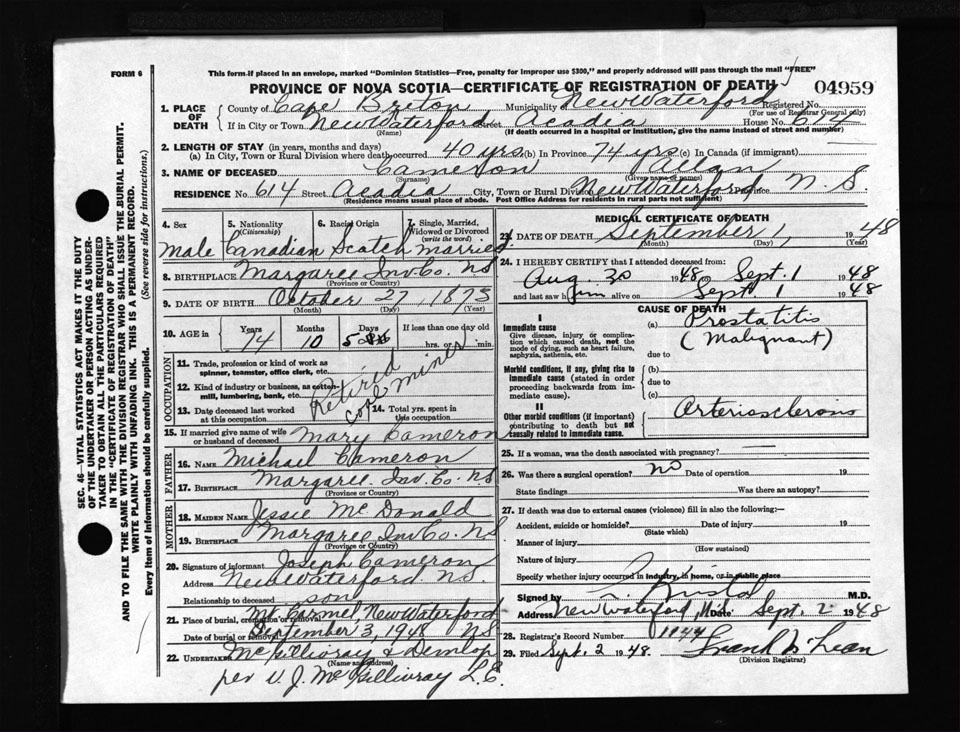 FORM 6
This form if placed in an envelope, marked "Dominion Statistics—Free, penalty for improper use $300," and properly addressed will pass through the mail "FREE"
PROVINCE OF NOVA SCOTIA—CERTIFICATE OF REGISTRATION OF DEATH 04959
1. PLACE OF DEATH County of Cape Breton Municipality New Waterford Registered No.
(For use of Registrar General only)
If in City or Town New Waterford Street Acadia House No.
(Name) (If death occurred in a hospital or institution, give the name instead of street and number)
2. LENGTH OF STAY (in years, months and days)
(a) In City, Town or Rural Division where death occurred 40 yrs (b) In Province 74 yrs (c) In Canada (if immigrant)
3. NAME OF DECEASED Cameron Allan
(Surname) (Given name or names)
RESIDENCE No. 614 Street Acadia City, Town or Rural Division New Waterford Province N. S.
(Residence means usual place of abode. Post Office Address for residents in rural parts not sufficient)
4. Sex 5. Nationality (Citizenship) 6. Racial Origin 7. Single, Married, Widowed or Divorced (write the word)
Male Canadian Scotch married
8. BIRTHPLACE Margaree Inv. Co. NS
(Province or Country)
9. DATE OF BIRTH October 27, 1873
(Month) (Day) (Year)
10. AGE in Years Months Days If less than one day old
74 10 5 hrs. or min.
OCCUPATION
11. Trade, profession or kind of work as spinner, teamster, office clerk, etc.
12. Kind of industry or business, as cotton-mill, lumbering, bank, etc.
Retired
coal mines
13. Date deceased last worked at this occupation 14. Total yrs. spent in this occupation
15. If married give name of wife or husband of deceased Mary Cameron
FATHER
16. NAME Michael Cameron
17. BIRTHPLACE Margaree Inv. Co. NS
(Province or Country)
MOTHER
18. MAIDEN NAME Jessie McDonald
19. BIRTHPLACE Margaree Inv Co. NS
(Province or Country)
20. Signature of informant Joseph Cameron
Address New Waterford NS.
Relationship to deceased son
21. Place of burial, cremation or removal Mt Carmel, New Waterford
Date of burial or removal September 3, 1948 NS
22. UNDERTAKER McGillivray & Dunlop
(Name and Address)
per V. J. McGillivray L.E.
MEDICAL CERTIFICATE OF DEATH
23. DATE OF DEATH September 1, 1948
(Month) (Day) (Year)
24. I HEREBY CERTIFY that I attended deceased from:
Aug 30 1948 to Sept. 1 1948
and last saw him alive on Sept 1 1948
CAUSE OF DEATH
I
Immediate cause
Give disease, injury or complication which caused death, not the mode of dying, such as heart failure, asphyxia, asthenia, etc.
(a) Prostatitis
(Malignant)
due to
Morbid conditions, if any, giving rise to immediate cause (stated in order proceeding backwards from immediate cause).
(b)
due to
(c)
II
Other morbid conditions (if important) contributing to death but not causally related to immediate cause.
Arteriosclerosis
25. If a woman, was the death associated with pregnancy?
26. Was there a surgical operation? no Date of operation 19
State findings Was there an autopsy?
27. If death was due to external causes (violence) fill in also the following:—
Accident, suicide or homicide? Date of injury 19
(State which)
Manner of injury
(How sustained)
Nature of injury
Specify whether injury occurred in industry, in home, or in public place
Signed by M.D.
Address New Waterford, N.S. Date Sept. 2 1948
28. Registrar's Record Number
29. Filed Sept. 2 1948. Frank McLean
(Division Registrar)
SEC. 46—VITAL STATISTICS ACT MAKES IT THE DUTY
OF THE UNDERTAKER OR PERSON ACTING AS UNDERTAKER TO OBTAIN ALL THE PARTICULARS REQUIRED
IN THE "CERTIFICATE OF REGISTRATION OF DEATH"
AND TO FILE THE SAME WITH THE DIVISION REGISTRAR WHO SHALL ISSUE THE BURIAL PERMIT.
WRITE PLAINLY WITH UNFADING INK. THIS IS A PERMANENT RECORD.
Every item of information should be carefully supplied. (See reverse side for instructions.)